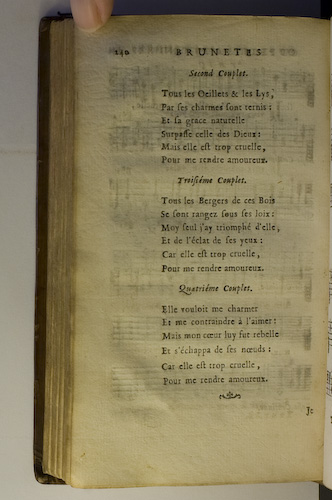 240 BRUNETES
Second Couplet.
Tous les Oeillets & les Lys,
Par ses charmes sont ternis :
Et sa grace naturelle
Surpasse celle des Dieux :
Mais elle est trop cruelle,
Pour me rendre amoureux.
Troisiéme Couplet.
Tous les Bergers de ces Bois
Se sont rangez sous ses loix :
Moy seul j'ay triomphé d'elle,
Et de l'éclat de ses yeux :
Car elle est trop cruelle,
Pour me rendre amoureux.
Quatriéme Couplet.
Elle vouloit me charmer
Et me contraindre à l'aimer :
Mais mon cœur luy fut rebelle
Et s'échappa de ses nœuds :
Car elle est trop cruelle,
Pour me rendre amoureux.
Je